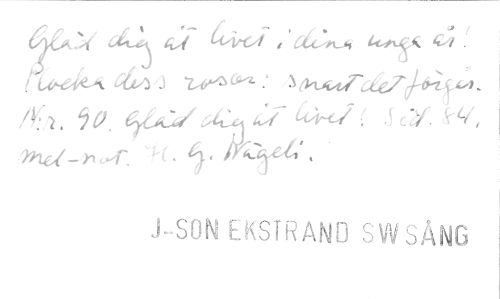 Gläd dig åt livet i dina unga år!
Plocka dess rosor: snart det förgår.
N:r. 90. Gläd dig åt livet! Sid. 84.
mel-not. H. G. Nägeli.
J-SON EKSTRAND SW SÅNG